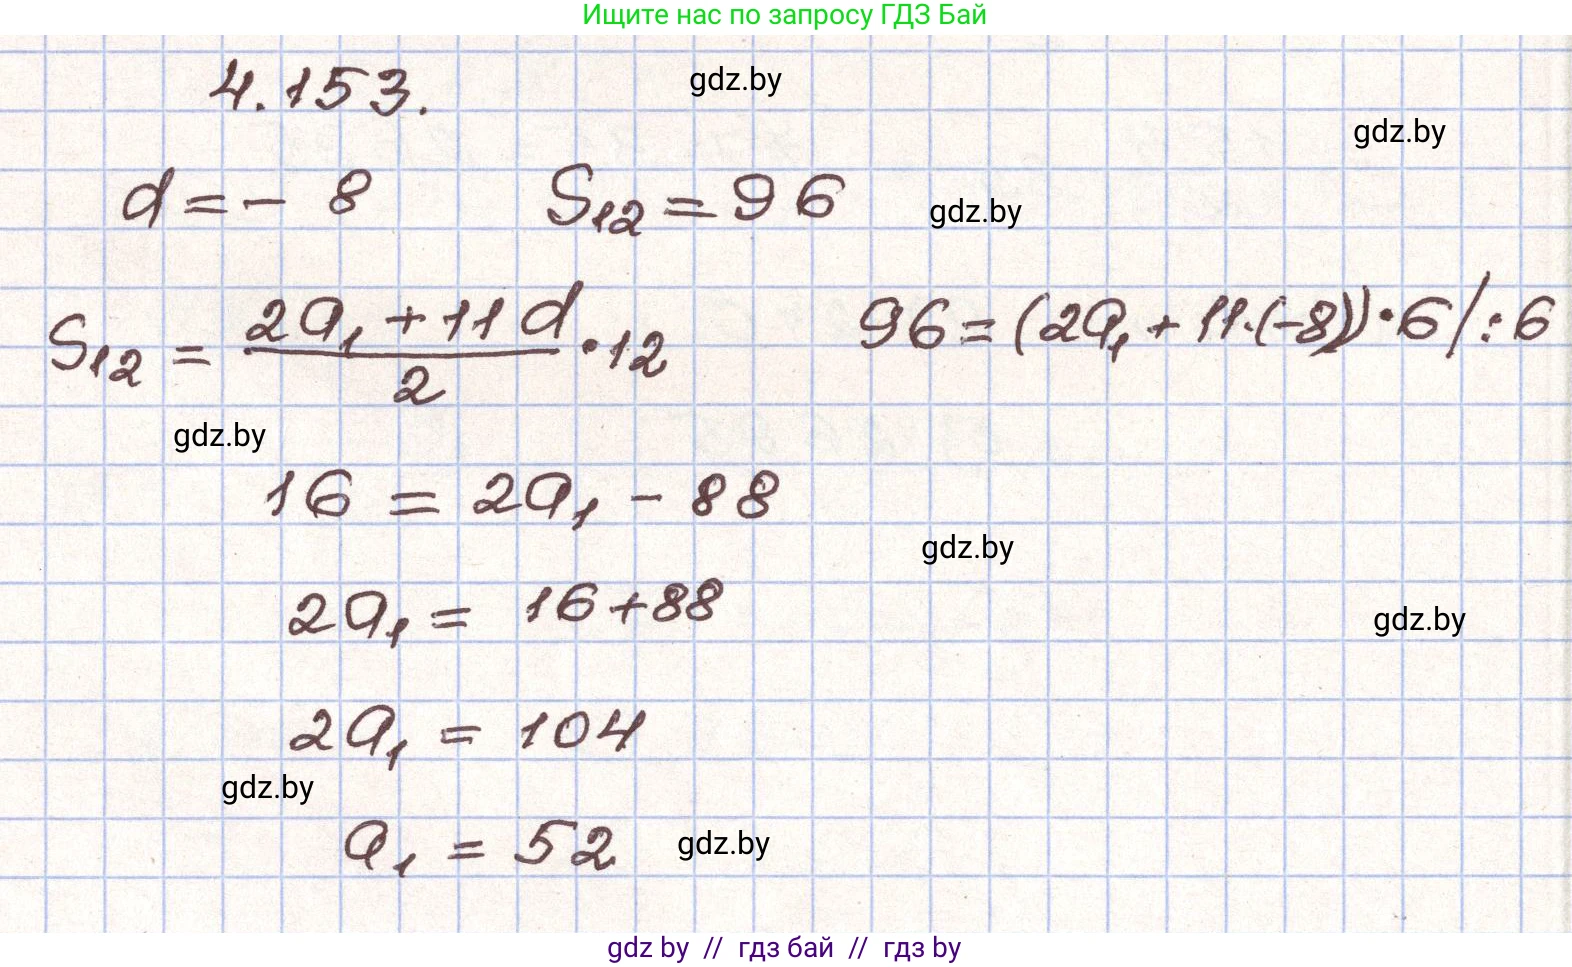 Ищите нас по запросу ГДЗ Бай
4.153.
gdz.by
gdz.by
d = - 8 S₁₂ = 96
gdz.by
S₁₂ = (2a₁ + 11d)/2 · 12 96 = (2a₁ + 11·(-8))·6 /:6
gdz.by
16 = 2a₁ - 88
gdz.by
2a₁ = 16+88
gdz.by
2a₁ = 104
gdz.by
a₁ = 52
gdz.by
gdz by // гдз бай // гдз by